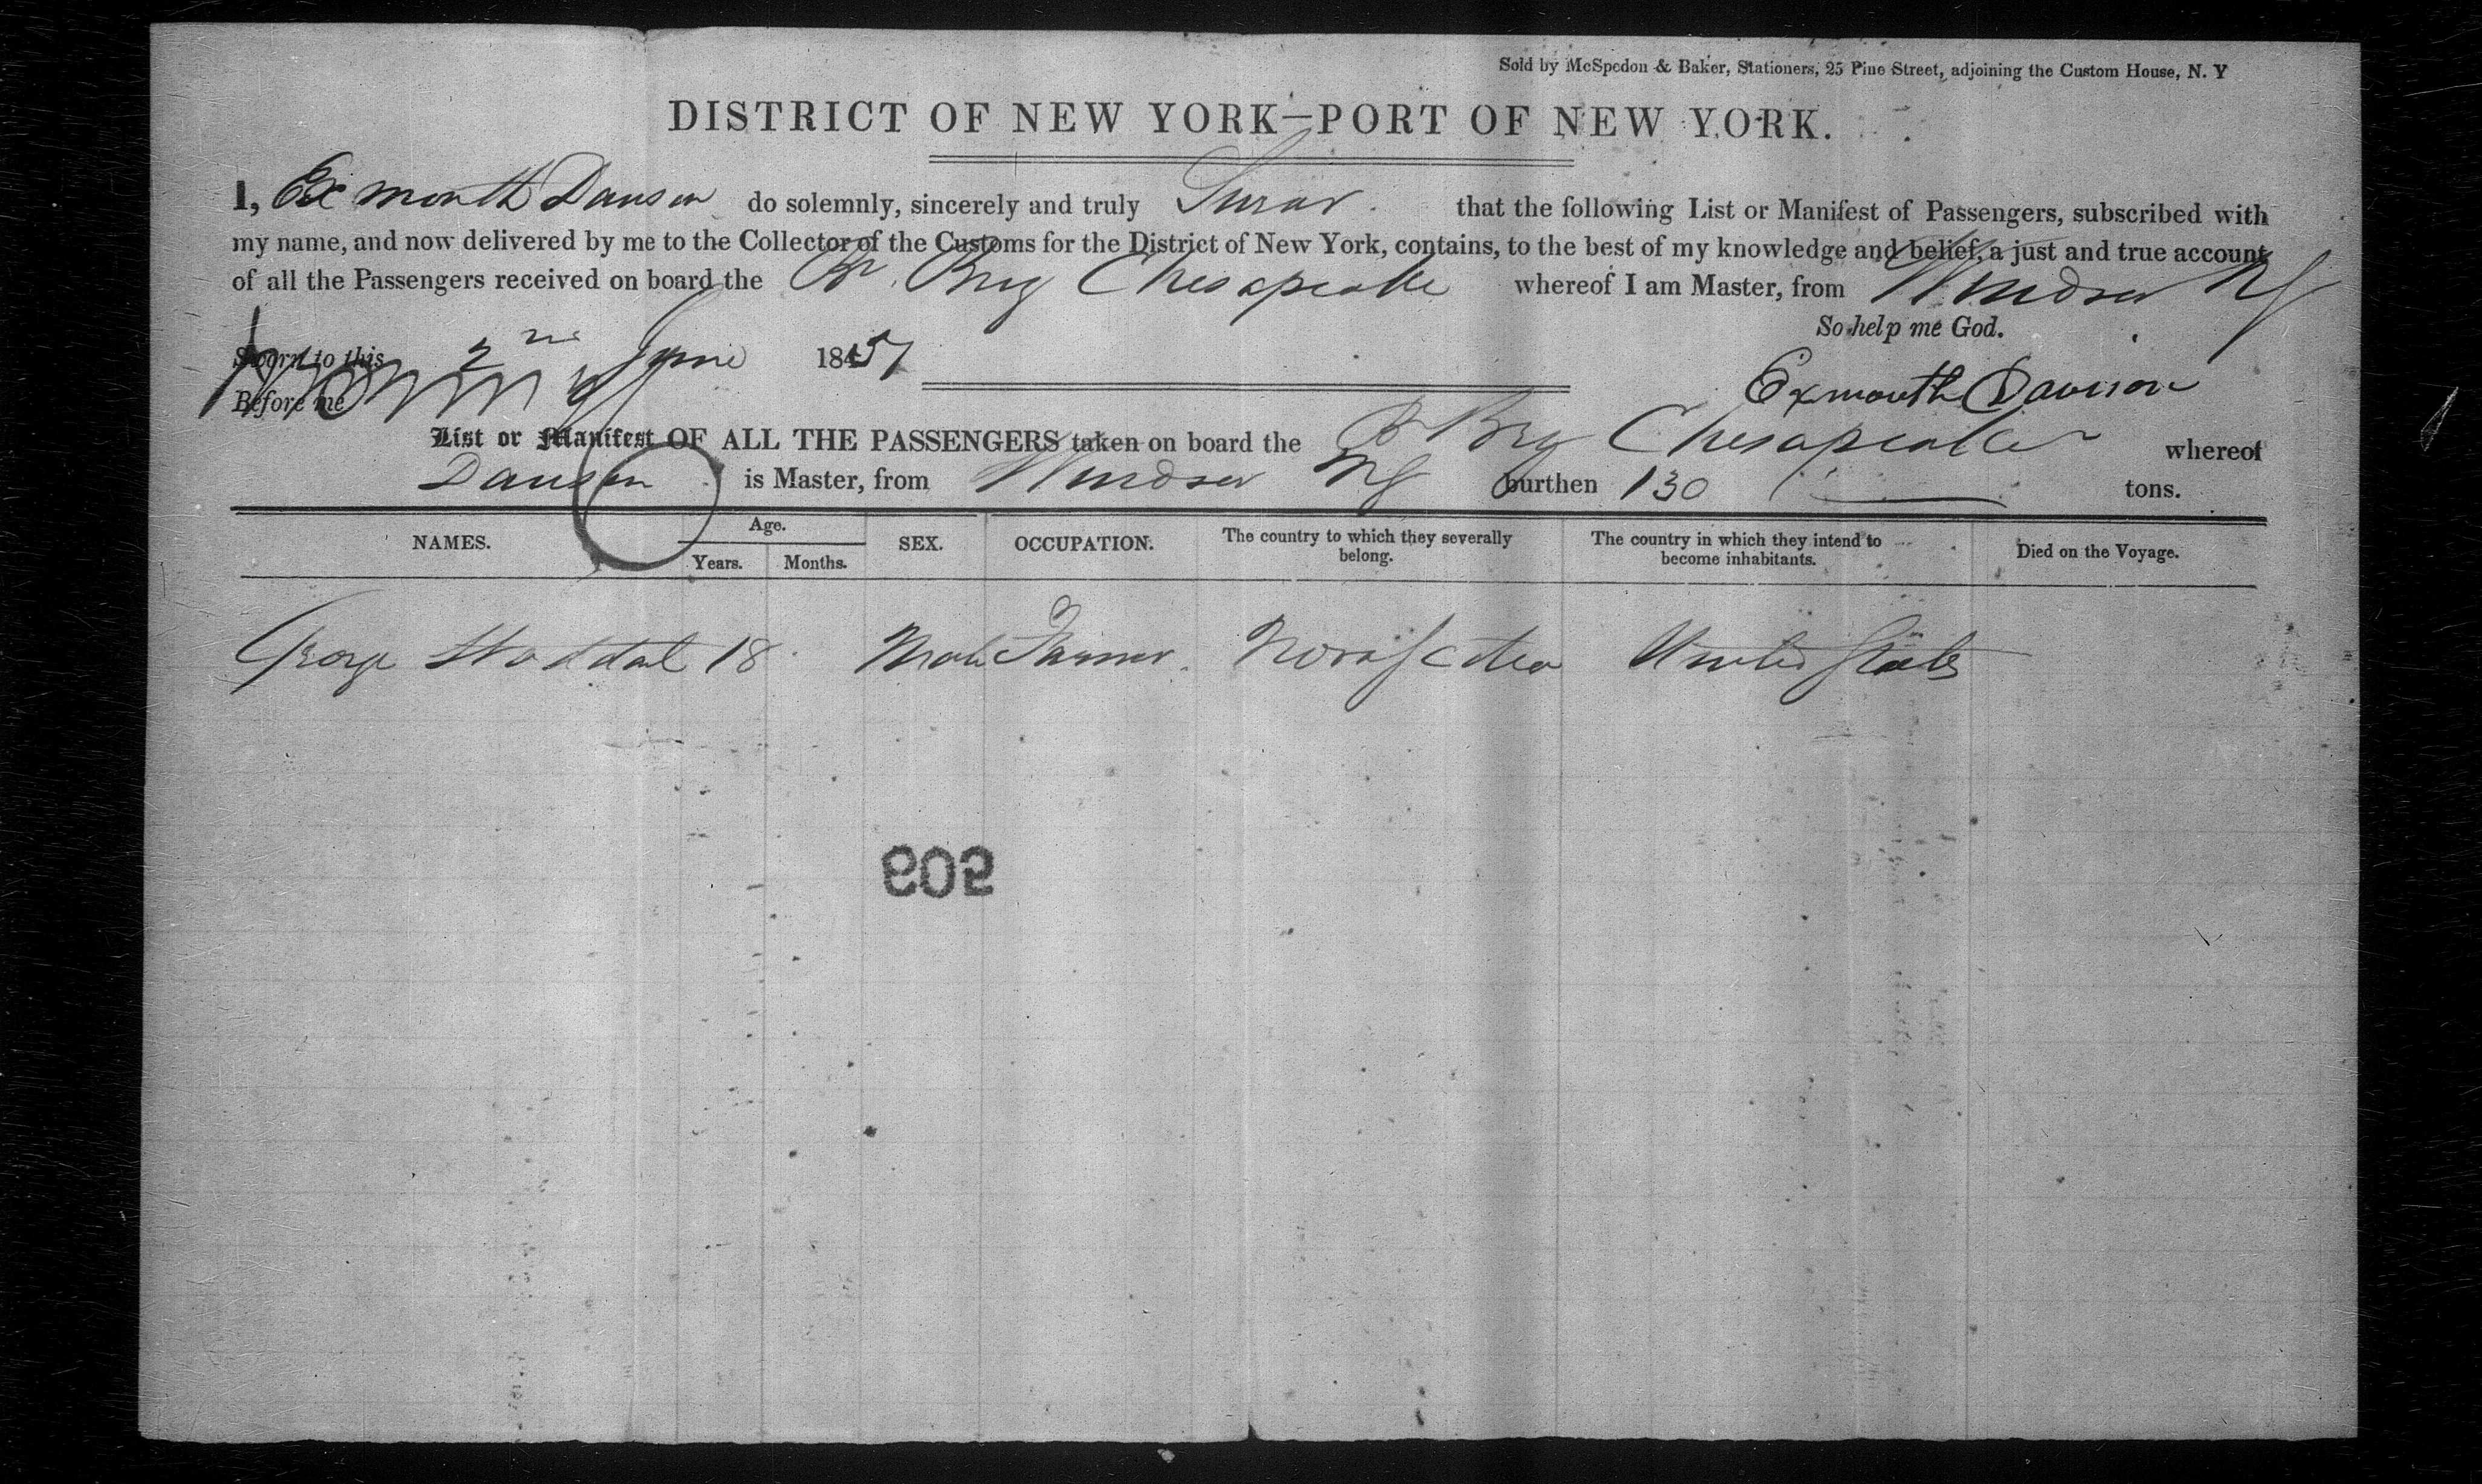 Sold by McSpedon & Baker, Stationers, 25 Pine Street, adjoining the Custom House, N. Y
DISTRICT OF NEW YORK—PORT OF NEW YORK.
I, Exmouth Davison do solemnly, sincerely and truly Swear that the following List or Manifest of Passengers, subscribed with
my name, and now delivered by me to the Collector of the Customs for the District of New York, contains, to the best of my knowledge and belief, a just and true account
of all the Passengers received on board the Br. Brig Chesapeake whereof I am Master, from Windsor NS
So help me God.
Sworn to this 2nd June 1851
Before me
Exmouth Davison
List or Manifest OF ALL THE PASSENGERS taken on board the Br Brig Chesapeake whereof
Davison is Master, from Windsor NS burthen 130 tons.
NAMES. Age. Years. Months. SEX. OCCUPATION. The country to which they severally belong. The country in which they intend to become inhabitants. Died on the Voyage.
George Stoddal 18 Male Farmer Nova Scotia United States
509